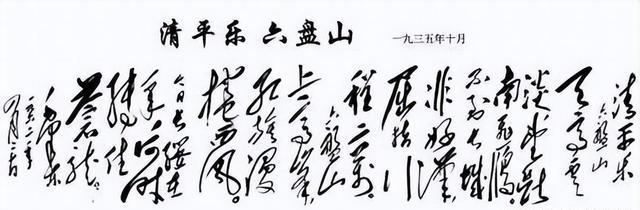 清平乐 六盘山 一九三五年十月
清平乐
六盘山
天高云
淡望断
南飞雁。
不到长城
非好汉,
屈指行
程二万。
六盘山
上高峰,
红旗漫
捲西风。
今日长缨在
手,何时
缚住
苍龙。
毛泽东